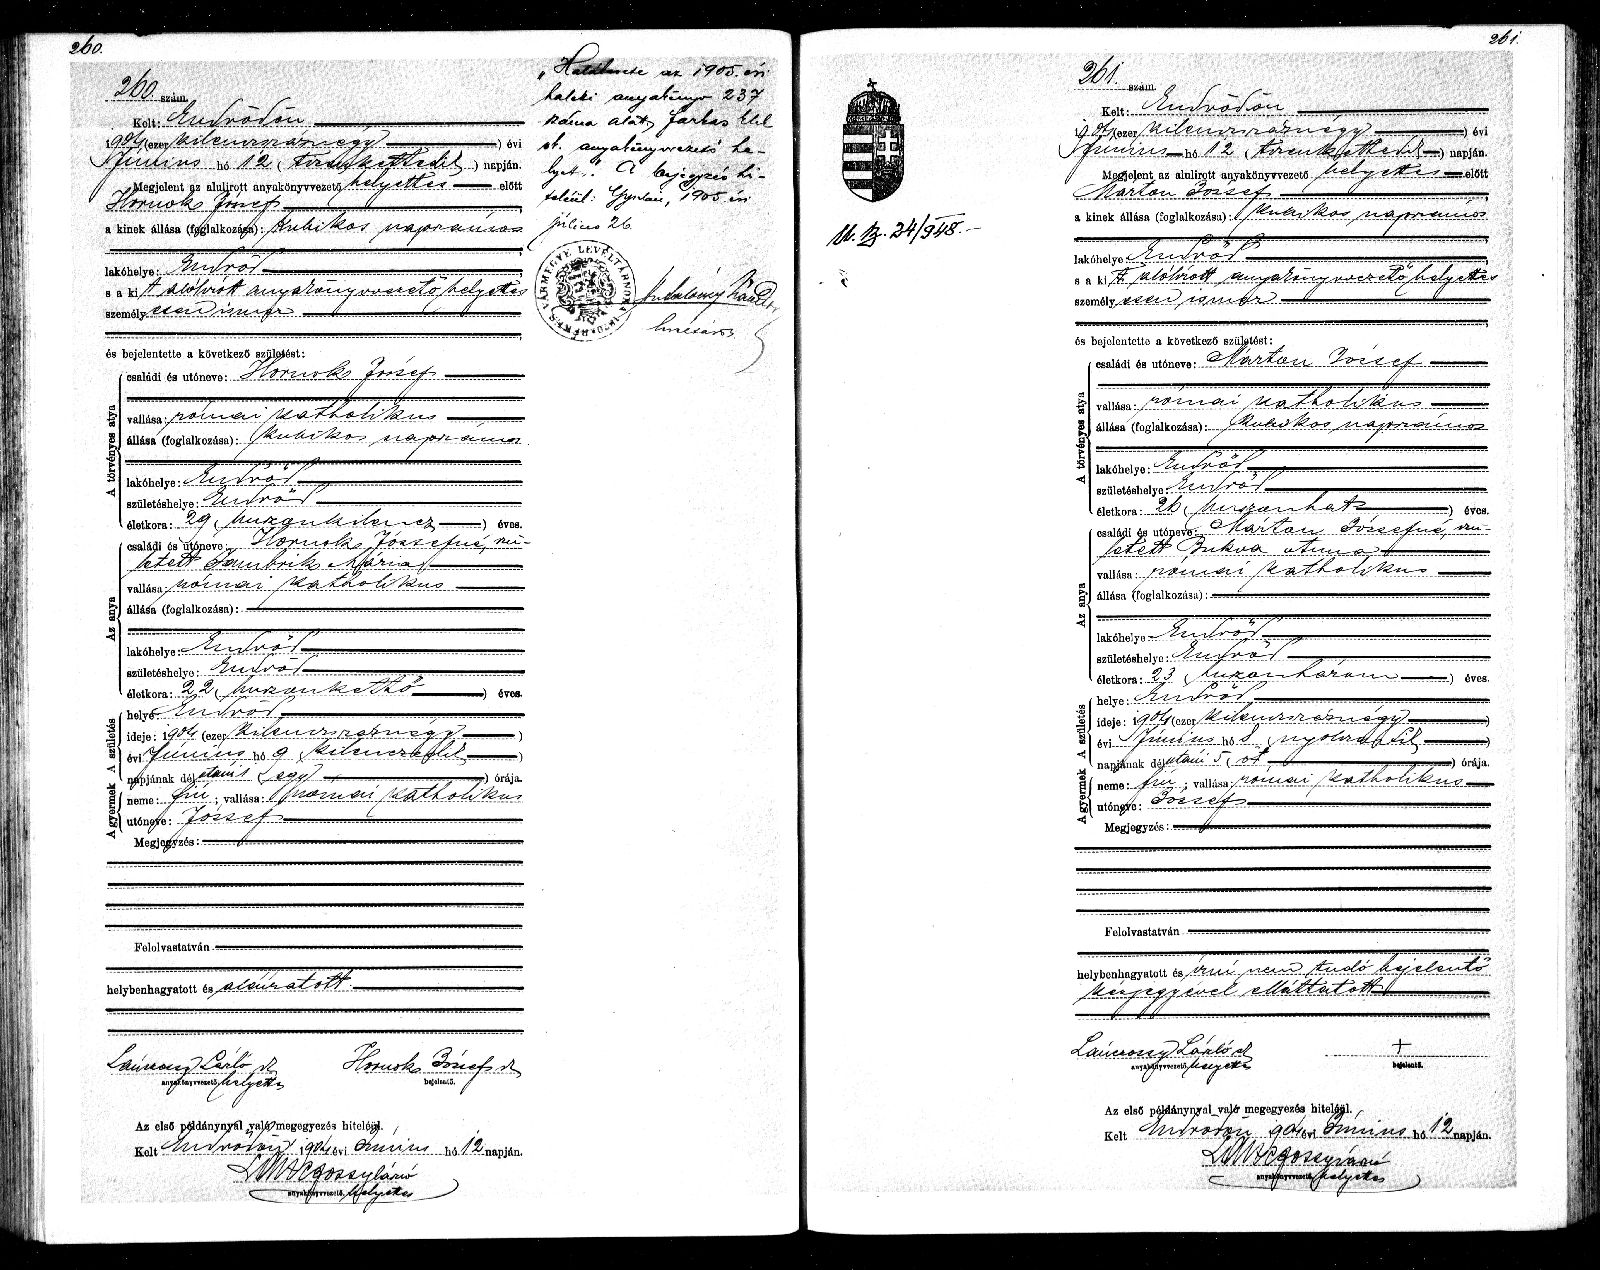 260.
260 szám.
Kelt: Endrődön
1904 (ezer kilenczszáznégy) évi
Június hó 12 (tizenkettedik) napján.
Megjelent az alulirott anyakönyvvezető helyettes előtt
Hornok József
a kinek állása (foglalkozása): kubikos napszámos
lakóhelye: Endrőd
s a kit alólirott anyakönyvvezető helyettes
személyesen ismer
és bejelentette a következő születést:
A törvényes atya
családi és utóneve: Hornok József
vallása: római katholikus
állása (foglalkozása): kubikos napszámos
lakóhelye: Endrőd
születéshelye: Endrőd
életkora: 29 (huszonkilencz) éves.
Az anya
családi és utóneve: Hornok Józsefné, szü-
letett Mária
vallása: római katholikus
állása (foglalkozása):
lakóhelye: Endrőd
születéshelye: Endrőd
életkora: 22 (huszonkettő) éves.
A születés
helye: Endrőd
ideje: 1904 (ezer kilenczszáznégy)
évi Június hó 9 (kilenczedik)
napjának délutáni 1 (egy) órája.
A gyermek
neme: fiú; vallása: római katholikus
utóneve: József
Megjegyzés:
Felolvastatván
helybenhagyatott és aláiratott.
László h.
anyakönyvvezető helyettes
Hornok József
bejelentő.
Az első példánynyal való megegyezés hiteléül.
Kelt Endrődön 1904 évi Június hó 12 napján.
anyakönyvvezető helyettes
„Halálesete az 1905. évi
haláli anyakönyv 237
száma alatt, Farkas Elek
st. anyakönyvvezető he-
lyet." A bejegyzés hi-
teléül: Gyulán, 1905. évi
július 26.
BÉKÉSVÁRMEGYE LEVÉLTÁRNOKA
261.
261. szám.
Kelt: Endrődön
1904 (ezer kilenczszáznégy) évi
Június hó 12 (tizenkettedik) napján.
Megjelent az alulirott anyakönyvvezető helyettes előtt
Márton József
a kinek állása (foglalkozása): kubikos napszámos
lakóhelye: Endrőd
s a kit alólirott anyakönyvvezető helyettes
személyesen ismer
és bejelentette a következő születést:
A törvényes atya
családi és utóneve: Márton József
vallása: római katholikus
állása (foglalkozása): kubikos napszámos
lakóhelye: Endrőd
születéshelye: Endrőd
életkora: 26 (huszonhat) éves.
Az anya
családi és utóneve: Márton Józsefné, szü-
letett Bukva Anna
vallása: római katholikus
állása (foglalkozása):
lakóhelye: Endrőd
születéshelye: Endrőd
életkora: 23 (huszonhárom) éves.
A születés
helye: Endrőd
ideje: 1904 (ezer kilenczszáznégy)
évi Június hó 8 (nyolczadik)
napjának délutáni 5 (öt) órája.
A gyermek
neme: fiú; vallása: római katholikus
utóneve: József
Megjegyzés:
Felolvastatván
helybenhagyatott és írni nem tudó bejelentő
kézjegyével elláttatott
László h.
anyakönyvvezető helyettes
+
bejelentő.
Az első példánynyal való megegyezés hiteléül.
Kelt Endrődön 1904 évi Június hó 12 napján.
anyakönyvvezető helyettes